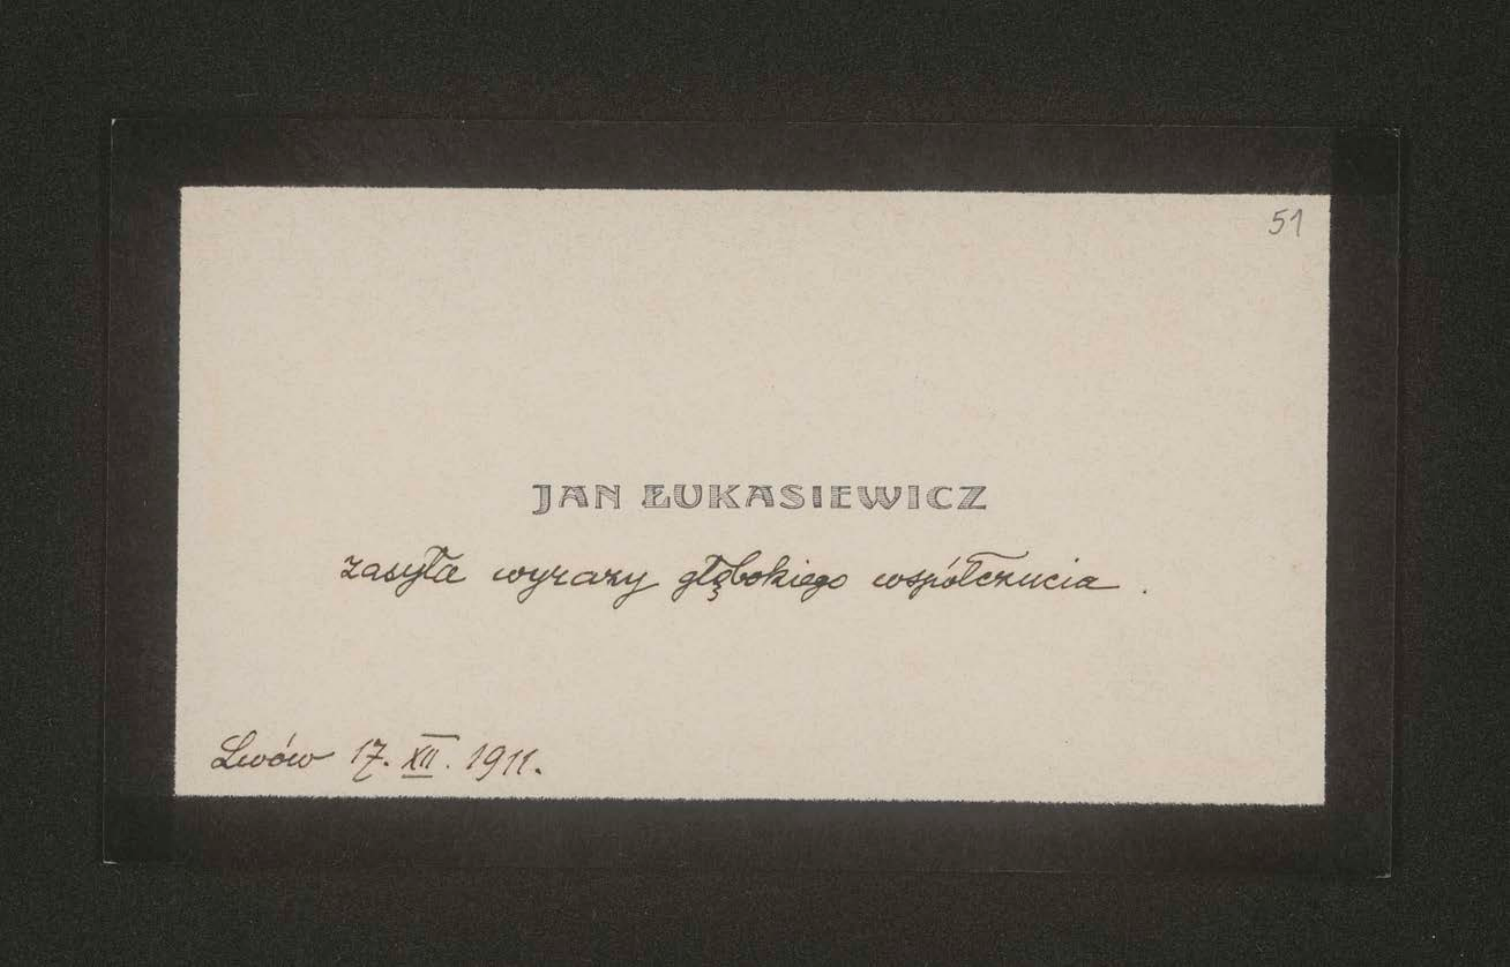 51
JAN ŁUKASIEWICZ
zasyła wyrazy głębokiego współczucia.
Lwów 17. XII. 1911.